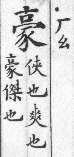 ㄏㄠ
豪
俠也爽也
豪傑也